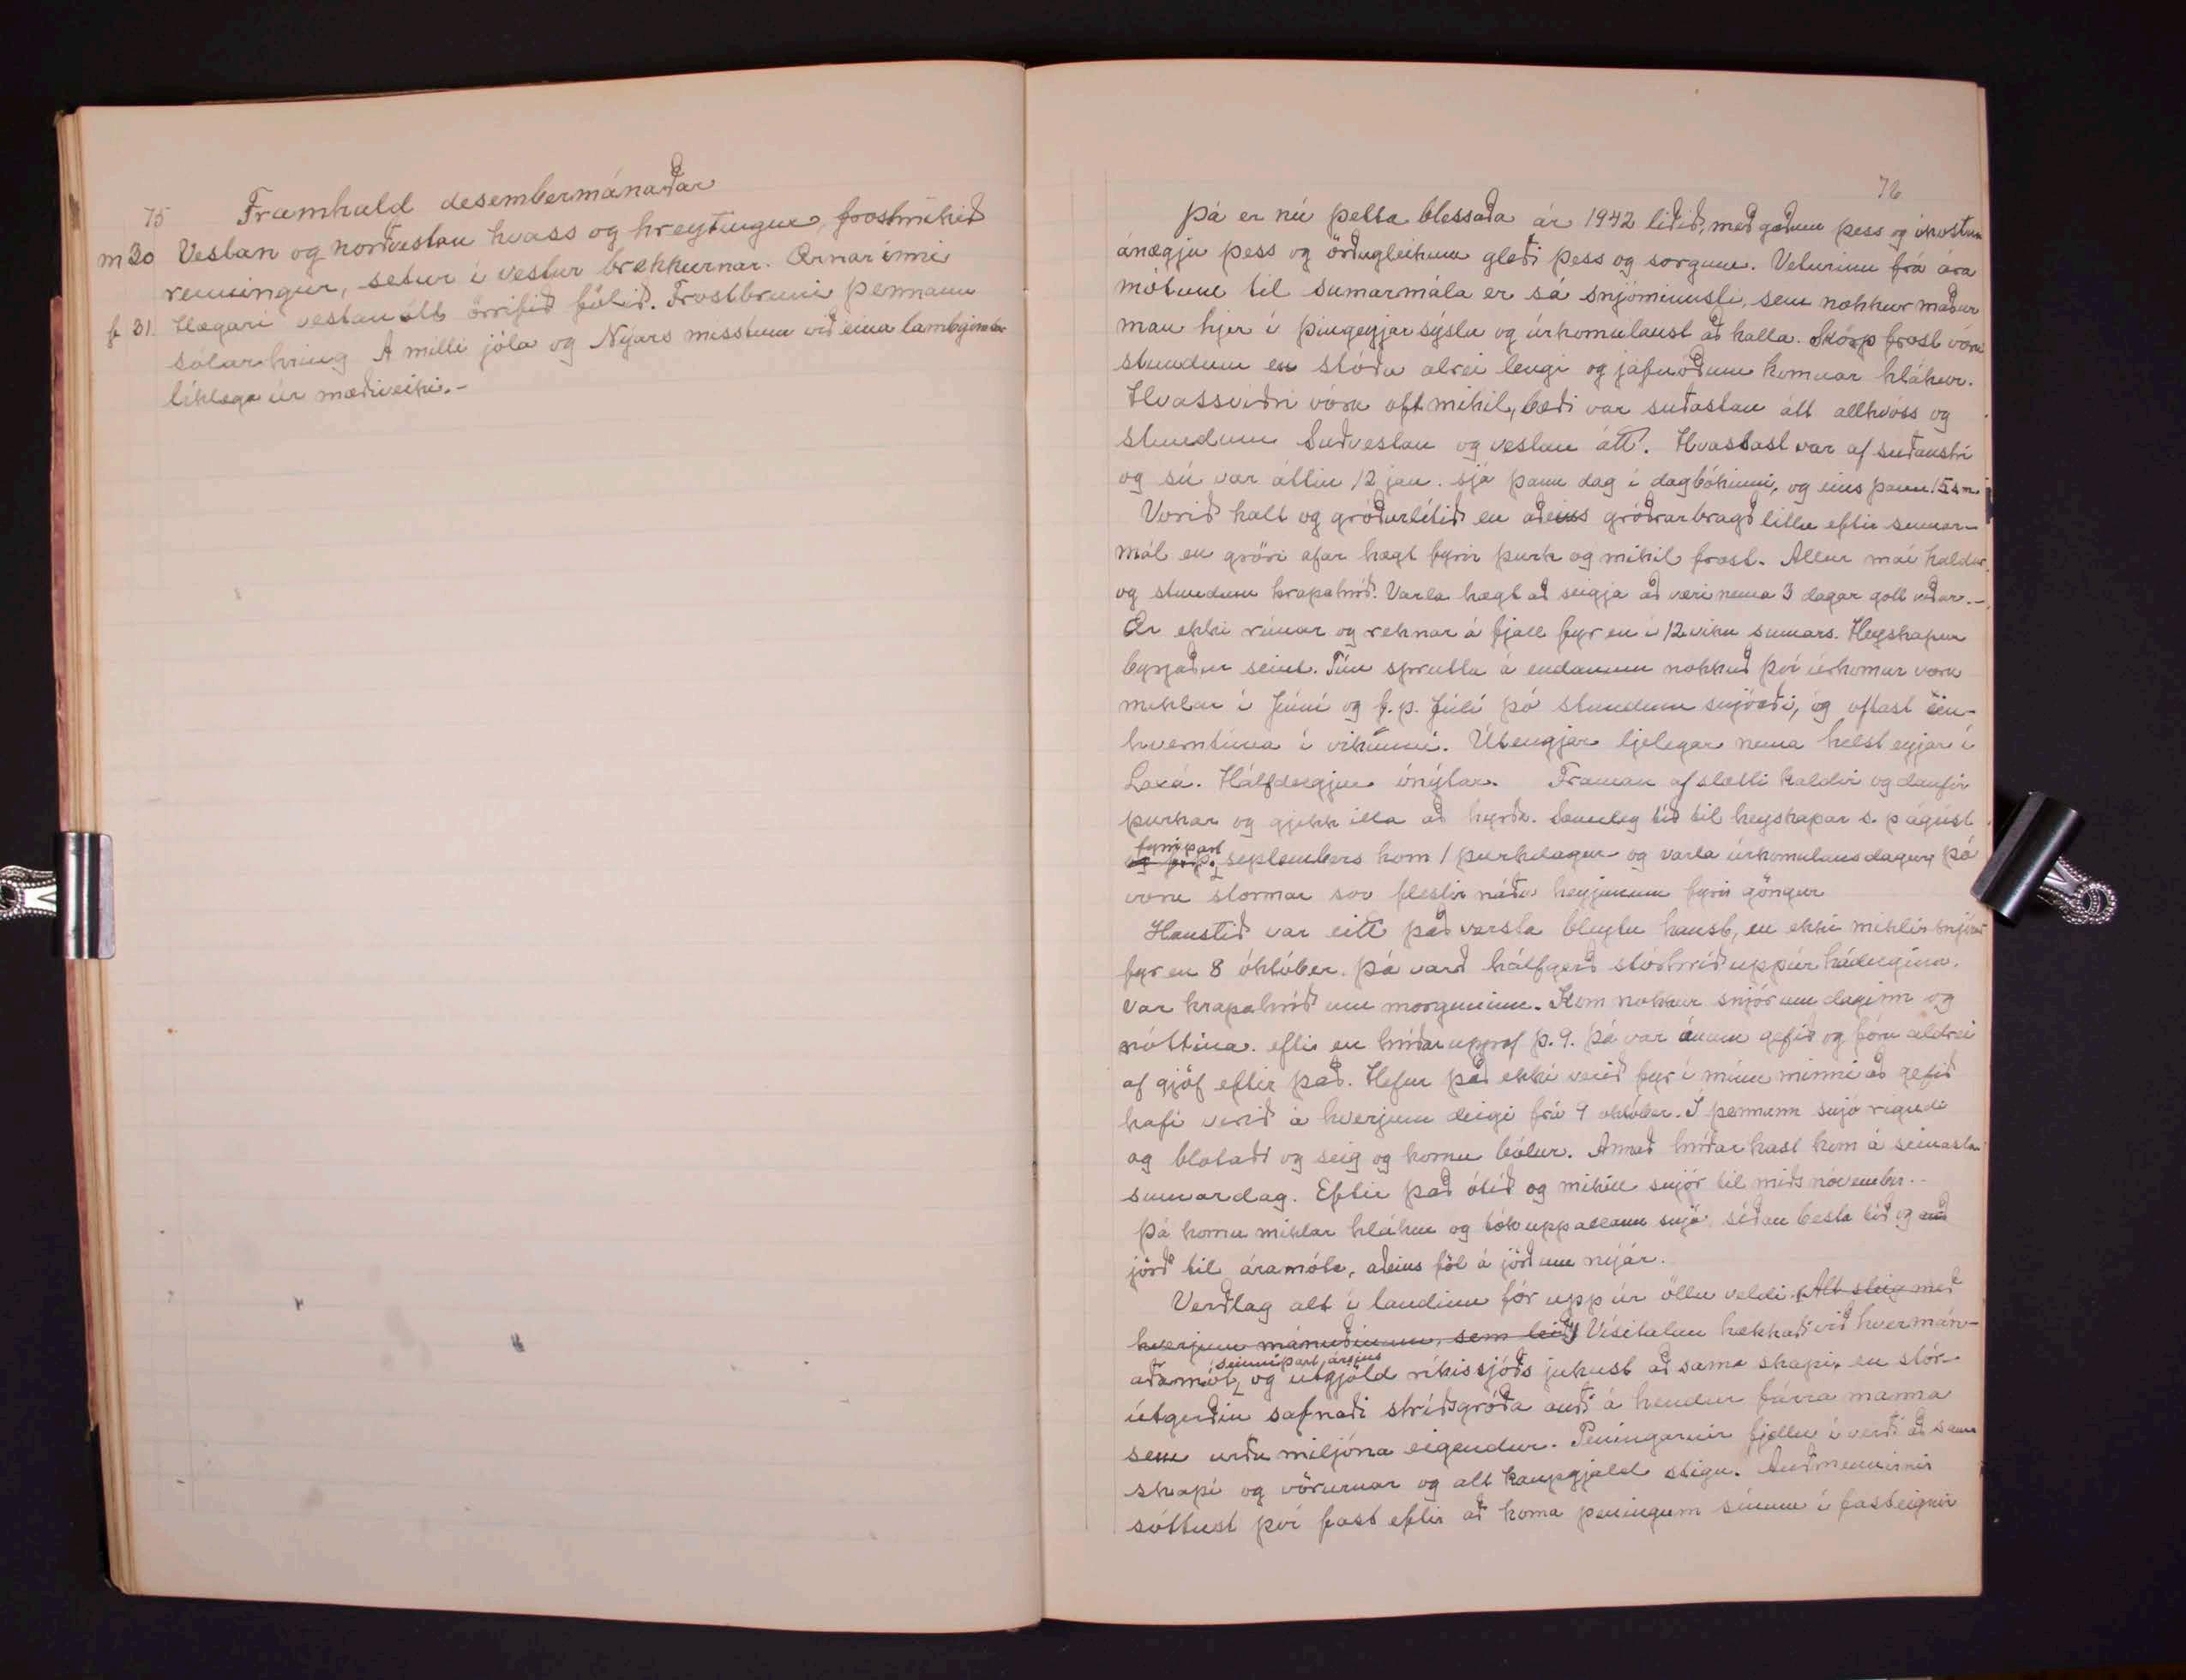 75 Framhald desembermánaðar
m 30 Vestan og norðvestan hvass og hreytingur, frostmikið
renningur, setur í vestur brekkurnar. Ærnar inni
f 31. Hægari vestanátt örrifið fölið. Frostbruni þennann
sólarhring Á milli jóla og Nýárs misstum við eina lambgimbur
líklega úr mæðiveiki.-
76
Þá er nú þetta blessaða ár 1942 liðið, með gæðum þess og ókostum
ánægju þess og örðugleikum gleði þess og sorgum. Veturinn frá ára
mótum til sumarmála er sá snjóminnsti, sem nokkur maður
man hjer í þingeyjarsýslu og úrkomulaust að kalla. Skörp frost vóru
stundum en stóðu alrei lengi og jafnóðum komnar hlákur.
Hvassviðri vóru oft mikil, bæði var suðaustan átt allhvöss og
stundum Suðvestan og vestan átt. Hvassast var af suðaustri
og sú var áttin 12 jan. sjá þann dag í dagbókinni, og eins þann 15 s.m.
Vorið kalt og gróðurlítið en aðeins gróðrarbragð litlu eftir sumar-
mál en gröri afar hægt fyrir þurk og mikil frost. Allur maí kaldur
og stundum krapahríð. Varla hægt að seigja að væri nema 3 dagar gott veður.-
Ær ekki rúnar og reknar á fjall fyr en í 12 viku sumars. Heyskapur
byrjaður seint. Tún spruttu á endanum nokkuð því úrkomur voru
miklar í Júní og f.p. Júlí þó stundum snjóaði, og oftast ein-
hverntíma í vikunni. Útengjar ljelegar nema helst eyjar í
Laxá. Hálfdeigjur ónýtar. Framan af slætti kaldir og daufir
þurkar og gjekk illa að hyrða. Sæmileg tíð til heyskapar s. p ágúst
og f. p. fyripart septembers kom 1 þurkdagur og varla úrkomulaus dagur, þó
voru stormar svo flestir náðu heyjunum fyrir göngur
Haustið var eitt það versta bleytu haust, en ekki miklir snjóar
fyr en 8 október. Þá varð hálfgerð stórhríð uppúr hádeginu.
var krapahríð um morguninn. Kom nokkur snjór um daginn og
nóttina. eftir en hríðaruppróf þ. 9. Þá var ánum gefið og fóru aldrei
af gjöf eftir það. Hefur það ekki verið fyr í mínu minni að gefið
hafi verið á hverjum deigi frá 9 október. Í þennann snjó rigndi
og blotaði og seig og komu bólur. Annað hríðarkast kom á seinasta
sumardag. Eftir það ótíð og mikill snjór til miðs nóvember.-
Þá komu miklar hlákur og tók upp allann snjó, síðan besta tíð og auð
jörð til áramóta, aðeins föl á jörð um nýár.
Verðlag alt í landinu fór upp úr öllu valdi. Alt steig með
hverjum mánuðinum, sem leið Vísitalan hækkaði við hver mán-
aðamót, seinnipart ársins og útgjöld ríkissjóðs jukust að sama skapi, en stór-
útgerðin safnaði stríðsgróða auði á hendur fárra manna
sem urðu miljóna eigendur. Peningarnir fjellu í verði að sama
skapi og vörurnar og alt kaupgjald stigu. Auðmennirnir
sóttust því fast eftir að koma peningum sínum í fasteignir